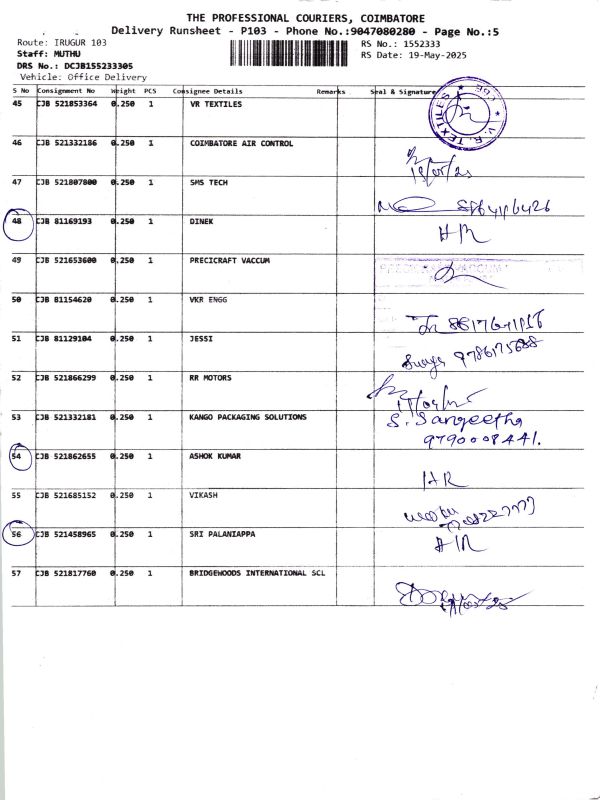 THE PROFESSIONAL COURIERS, COIMBATORE
Delivery Runsheet - P103 - Phone No.:9047080280 - Page No.:5
Route: IRUGUR 103
RS No.: 1552333
Staff: MUTHU
RS Date: 19-May-2025
DRS No.: DCJB155233305
Vehicle: Office Delivery
S No Consignment No Weight PCS Consignee Details Remarks Seal & Signature
45 CJB 521853364 0.250 1 VR TEXTILES V.R. TEXTILES CBE
46 CJB 521332186 0.250 1 COIMBATORE AIR CONTROL
47 CJB 521807800 0.250 1 SMS TECH
48 CJB 81169193 0.250 1 DINEK
49 CJB 521653600 0.250 1 PRECICRAFT VACCUM
50 CJB 81154620 0.250 1 VKR ENGG
51 CJB 81129104 0.250 1 JESSI
52 CJB 521866299 0.250 1 RR MOTORS
53 CJB 521332181 0.250 1 KANGO PACKAGING SOLUTIONS S. Sangeetha
9790008441.
54 CJB 521862655 0.250 1 ASHOK KUMAR
55 CJB 521685152 0.250 1 VIKASH
56 CJB 521458965 0.250 1 SRI PALANIAPPA
57 CJB 521817760 0.250 1 BRIDGEWOODS INTERNATIONAL SCL